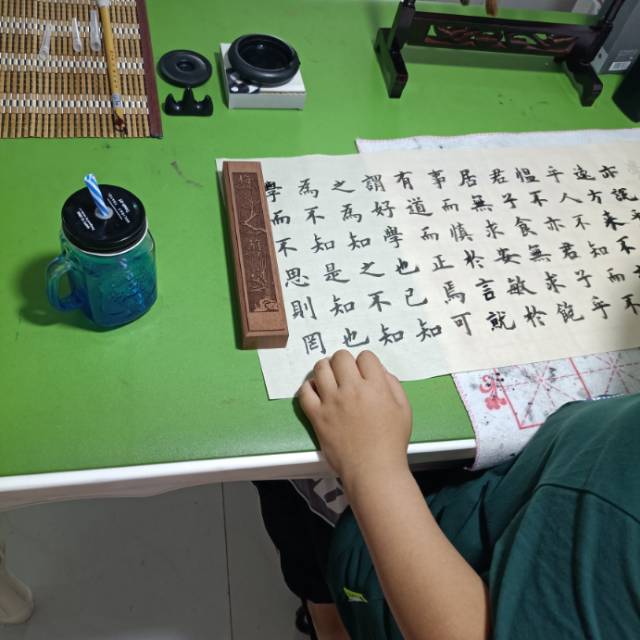 亦説
遠方來不
乎人不知而不
慍不亦君子乎
君子食無求飽
居無求安敏於
事而慎於言就
有道而正焉可
謂好學也已知
之為知之不知
為不知是知也
學而不思則罔